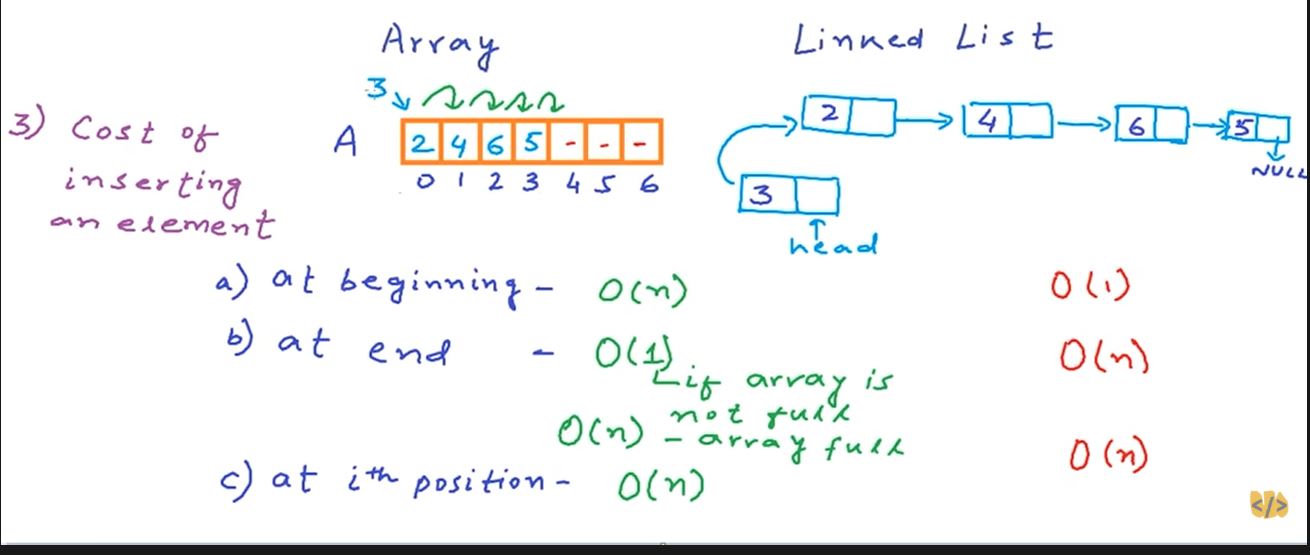 Array Linked List
3
3) Cost of
inserting
an element
A 2 4 6 5 - - -
0 1 2 3 4 5 6
2 4 6 5
NULL
3
head
a) at beginning - O(n) O(1)
b) at end - O(1) O(n)
if array is
not full
O(n) - array full
c) at ith position - O(n) O(n)
</>